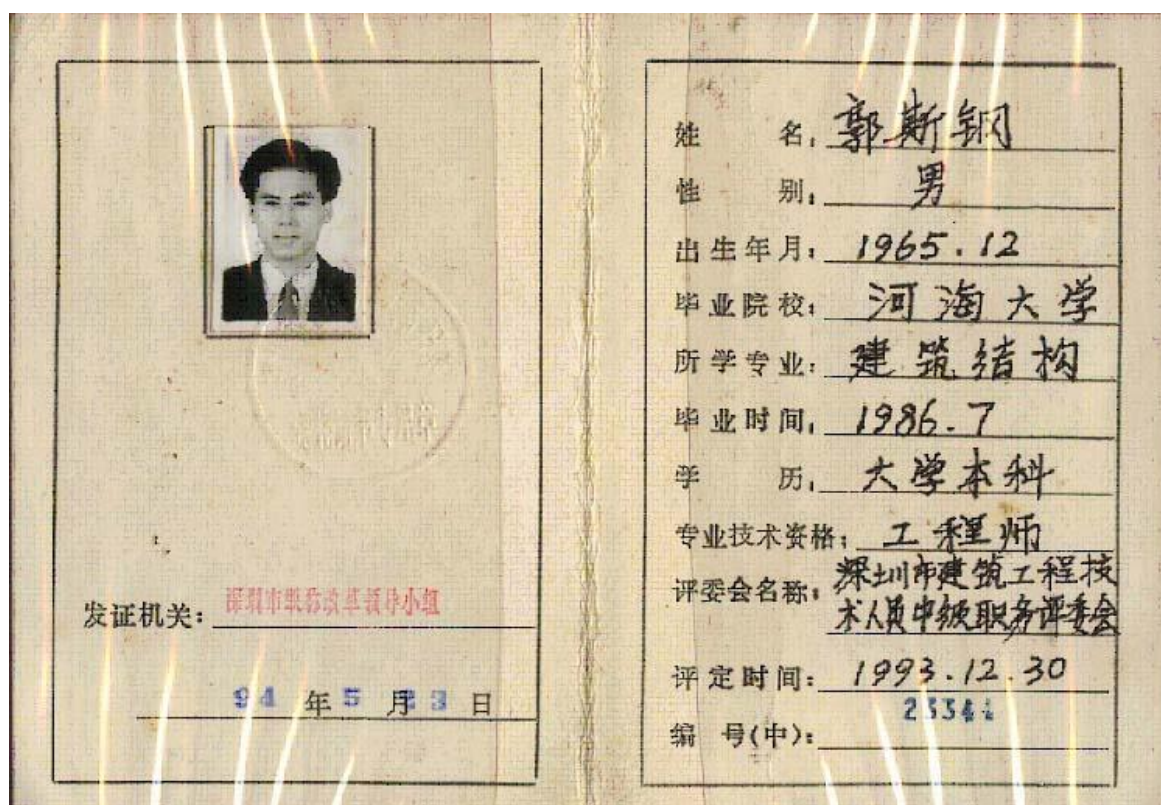 发证机关：深圳市职称改革领导小组
94 年 5 月 23 日
姓名：郭斯钢
性别：男
出生年月：1965.12
毕业院校：河海大学
所学专业：建筑结构
毕业时间：1986.7
学历：大学本科
专业技术资格：工程师
评委会名称：深圳市建筑工程技
术人员中级职务评委会
评定时间：1993.12.30
编号(中)：2334